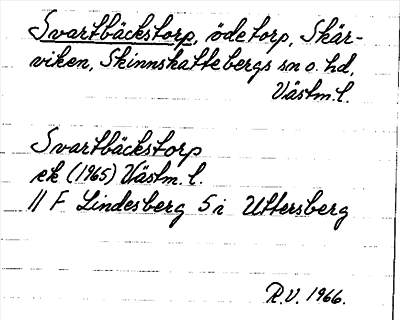 Svartbäckstorp, ödetorp, Skär-
viken, Skinnskattebergs sn o. hd,
Västm.l.
Svartbäckstorp
ek (1965) Västm. l.
// F Lindesberg 5 i Uttersberg
R.V. 1966.